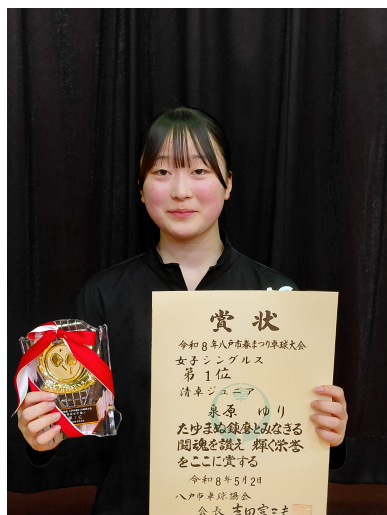 賞状
令和8年八戸市春まつり卓球大会
女子シングルス
第1位
清卓ジュニア
泉原 ゆり
たゆまぬ錬磨とみなぎる
闘魂を讃え 輝く栄誉
をここに賞する
令和8年5月2日
八戸市卓球協会
会長